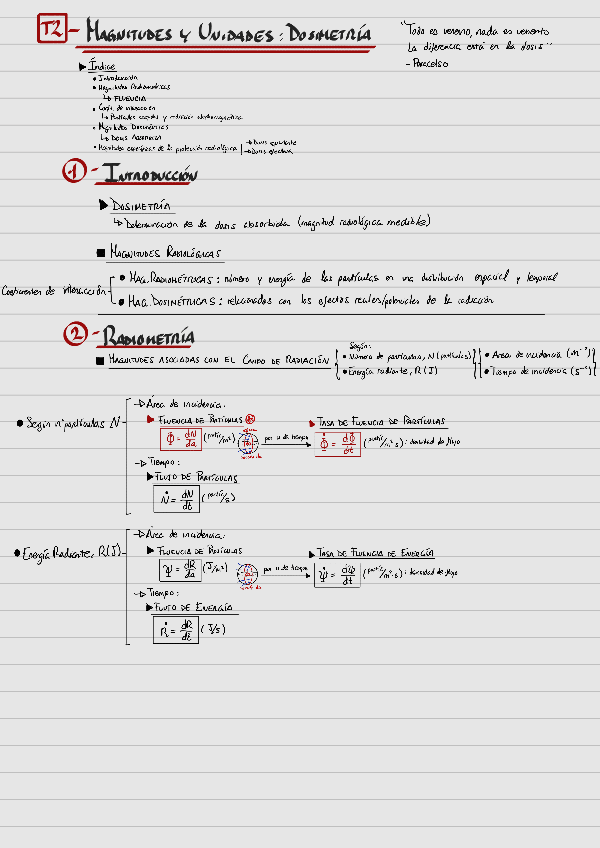 T2 - MAGNITUDES Y UNIDADES: DOSIMETRÍA
"Todo es veneno, nada es veneno
La diferencia está en la dosis"
- Paracelso
▶ Índice
• Introducción
• Magnitudes Radiométricas
↳ FLUENCIA
• Coef. de interacción
↳ Partículas cargadas y radiación electromagnética
• Magnitudes Dosimétricas
↳ DOSIS ABSORBIDA
• Magnitudes específicas de la protección radiológica
→ Dosis equivalente
→ Dosis efectiva
1 - INTRODUCCIÓN
▶ DOSIMETRÍA
↳ Determinación de la dosis absorbida (magnitud radiológica medible)
■ MAGNITUDES RADIOLÓGICAS
Coeficientes de interacción
• MAG. RADIOMÉTRICAS: número y energía de las partículas en una distribución espacial y temporal
• MAG. DOSIMÉTRICAS: relacionados con los efectos reales/potenciales de la radiación
2 - RADIOMETRÍA
■ MAGNITUDES ASOCIADAS CON EL CAMPO DE RADIACIÓN
Según:
• Número de partículas, N (partículas)
• Energía radiante, R (J)
• Área de incidencia (m⁻²)
• Tiempo de incidencia (s⁻¹)
• Según nº partículas N
→ Área de incidencia:
▶ FLUENCIA DE PARTÍCULAS
Φ = dN/da (partíc/m²)
por u de tiempo
▶ TASA DE FLUENCIA DE PARTÍCULAS
Φ̇ = dΦ/dt (partíc/m²·s): densidad de flujo
→ Tiempo:
▶ FLUJO DE PARTÍCULAS
Ṅ = dN/dt (partíc/s)
• Energía Radiante, R(J)
→ Área de incidencia:
▶ FLUENCIA DE PARTÍCULAS
Ψ = dR/da (J/m²)
por u de tiempo
▶ TASA DE FLUENCIA DE ENERGÍA
Ψ̇ = dΨ/dt (partíc/m²·s): densidad de flujo
→ Tiempo:
▶ FLUJO DE ENERGÍA
Ṙ = dR/dt (J/s)